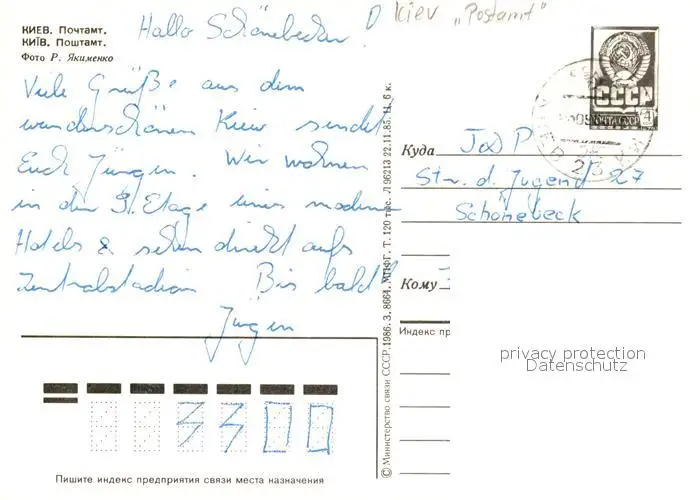 КИЕВ. Почтамт.
КИЇВ. Поштамт.
Фото Р. Якименко
Hallo Schönebecker!
D Kiev „Postamt"
Viele Grüße aus dem
wunderschönen Kiew sendet
Euch Jürgen. Wir wohnen
in der 9. Etage eines modernen
Hotels & sehen direkt aufs
Zentralstadion Bis bald!
Jürgen
СССР
ПОЧТА СССР
4
Куда J & P
Str. d. Jugend 27
Schönebeck
Кому
Индекс пр
privacy protection
Datenschutz
© Министерство связи СССР. 1986. З. 8664. МПФГ. Т. 120 тыс. Л 86213 22.11.85. Ц. 6 к.
Пишите индекс предприятия связи места назначения